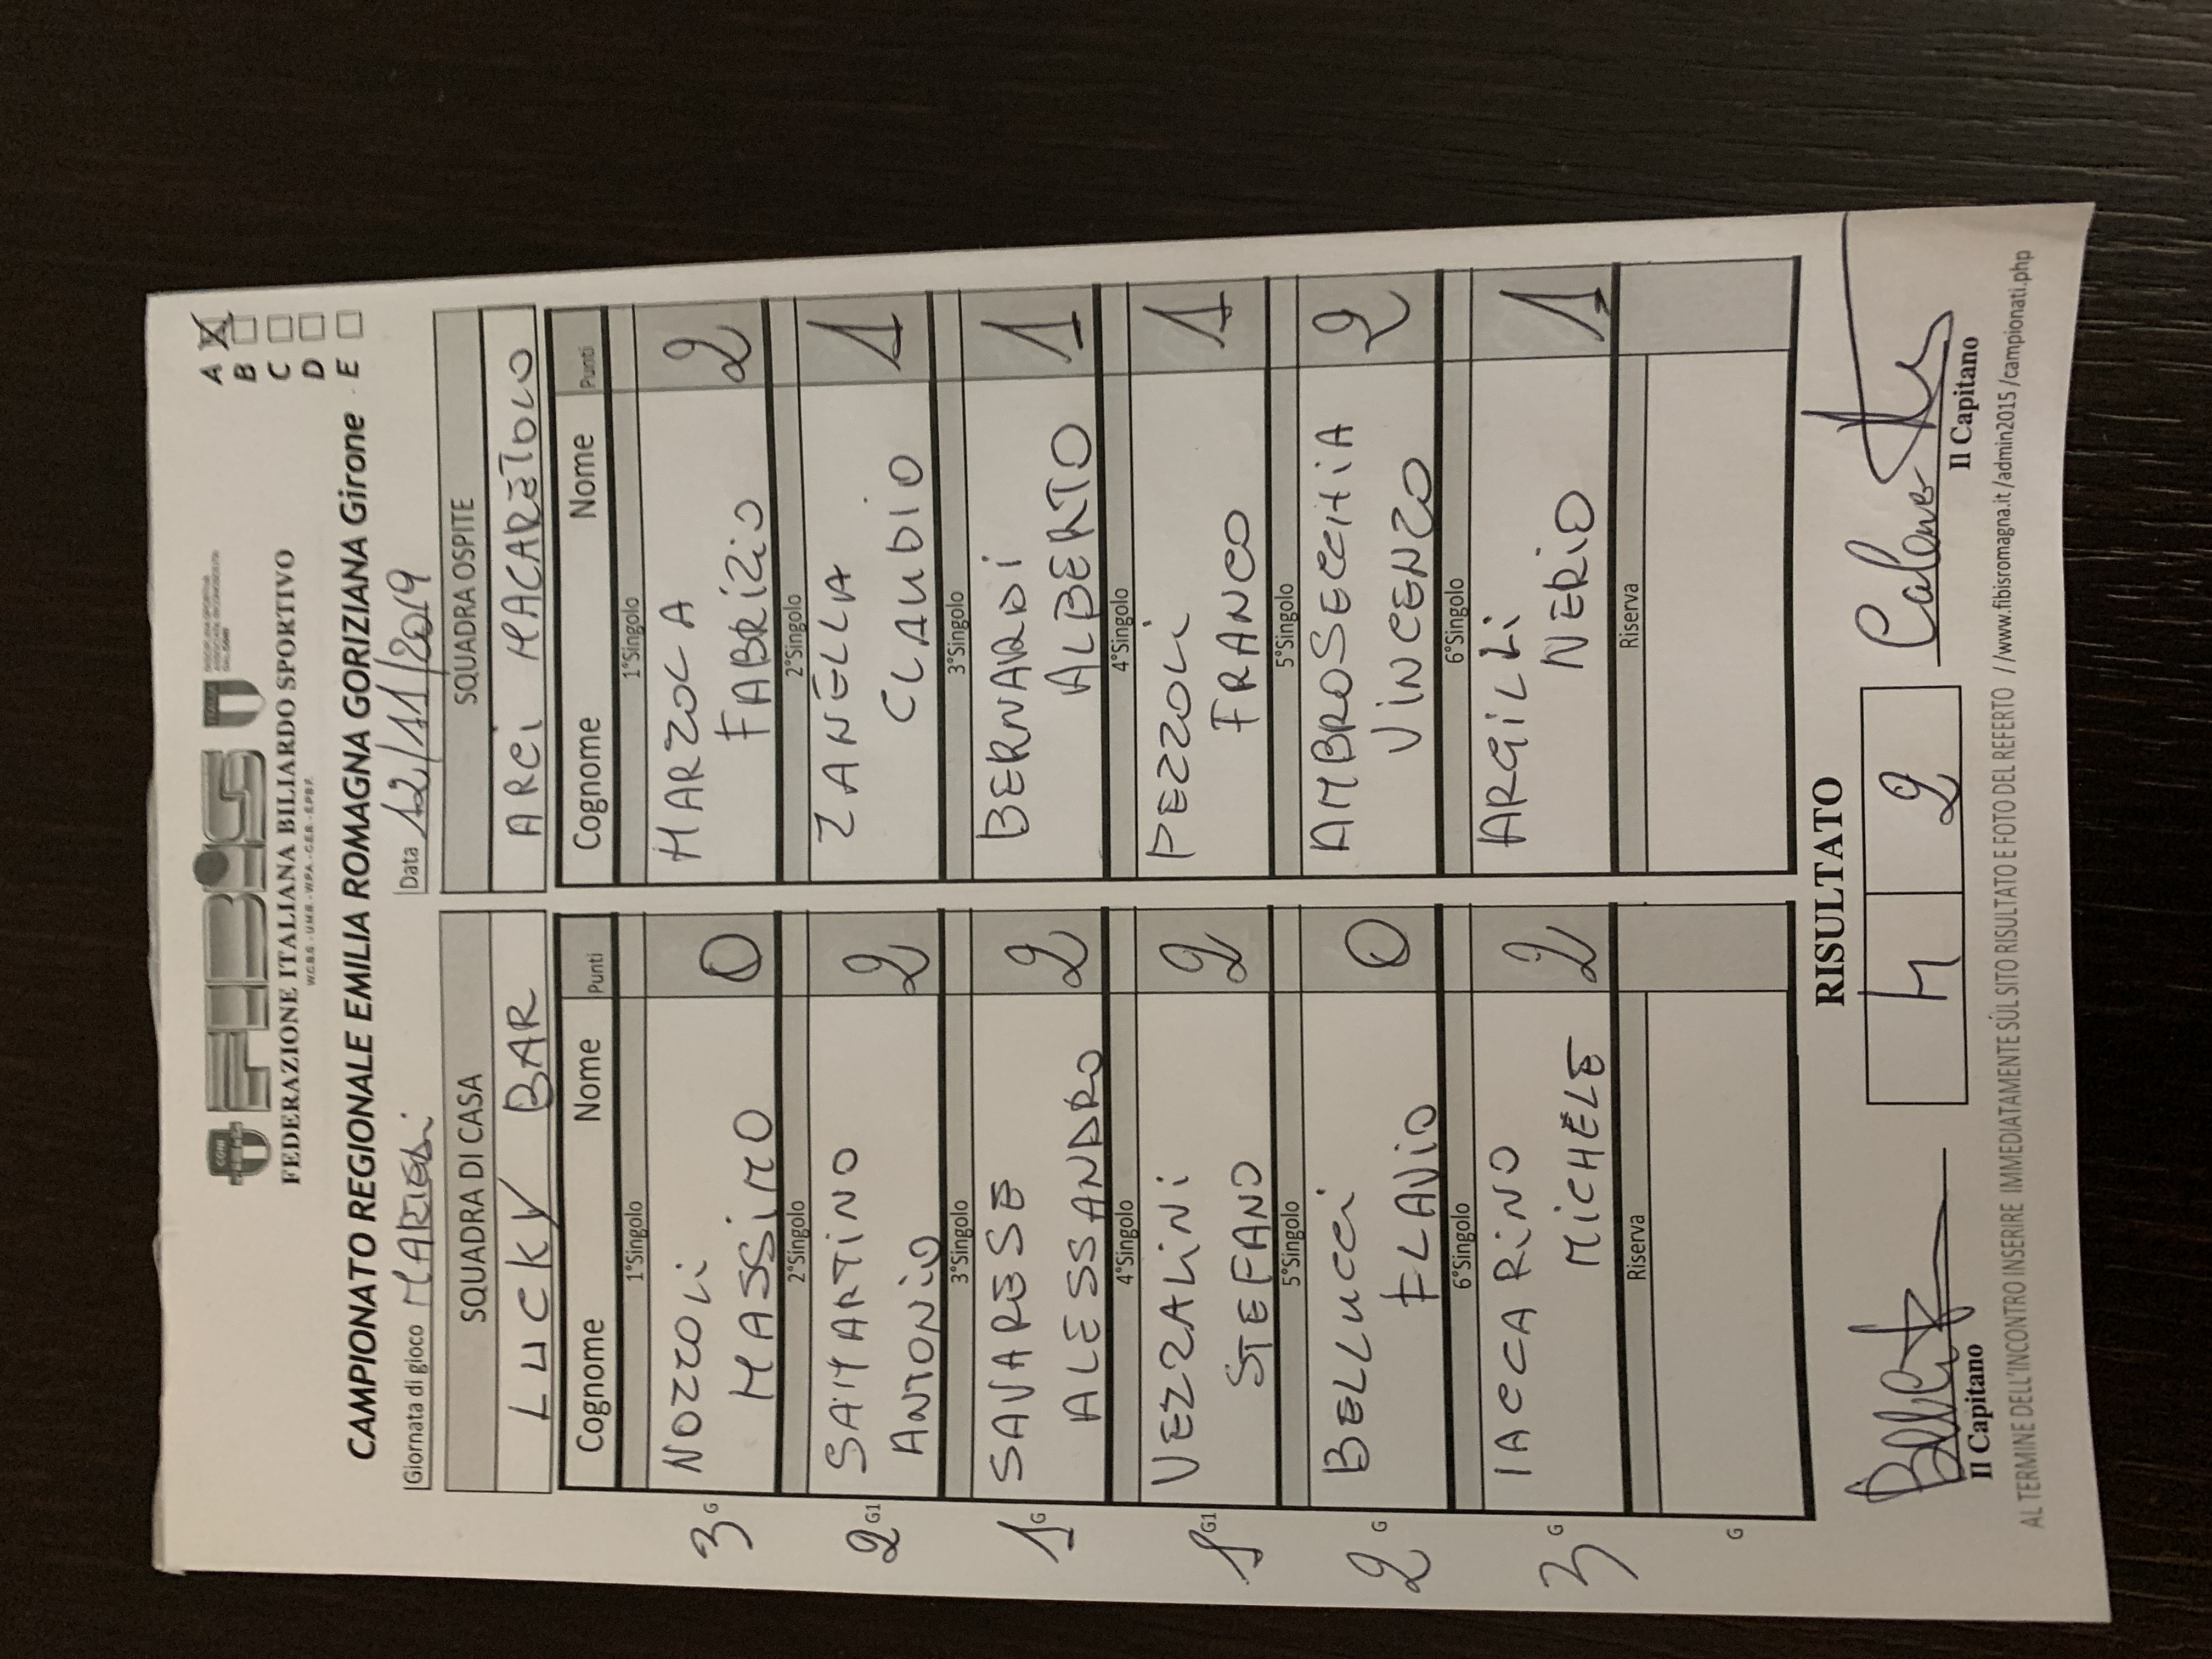 FEDERAZIONE ITALIANA BILIARDO SPORTIVO
CAMPIONATO REGIONALE EMILIA ROMAGNA GORIZIANA Girone
A
B
C
D
E
Giornata di gioco MARTEDi
Data 12/11/2019
SQUADRA DI CASA
SQUADRA OSPITE
LUCKY BAR
ARCi MACARETOLO
Cognome Nome Punti
Cognome Nome Punti
1°Singolo
1°Singolo
3 G NOZZOLi MASSiMO 0
MARZOLA FABRiZiO 2
2°Singolo
2°Singolo
2 G1 SAMARTINO ANTONiO 2
ZANELLA CLAUDiO 1
3°Singolo
3°Singolo
1 G SAVARESE ALESSANDRO 2
BERNARDi ALBERTO 1
4°Singolo
4°Singolo
1 G1 VEZZALiNi STEFANO 2
PEZZOLi FRANCO 1
5°Singolo
5°Singolo
2 G BELLUCCi FLAViO 0
AMBROSECCHiA ViNCENZO 2
6°Singolo
6°Singolo
3 G IACCARiNO MiCHELE 2
ARGiLLi NERiO 1
Riserva
Riserva
G
RISULTATO
4 2
Il Capitano
Il Capitano
AL TERMINE DELL'INCONTRO INSERIRE IMMEDIATAMENTE SUL SITO RISULTATO E FOTO DEL REFERTO //www.fibisromagna.it/admin2015/campionati.php